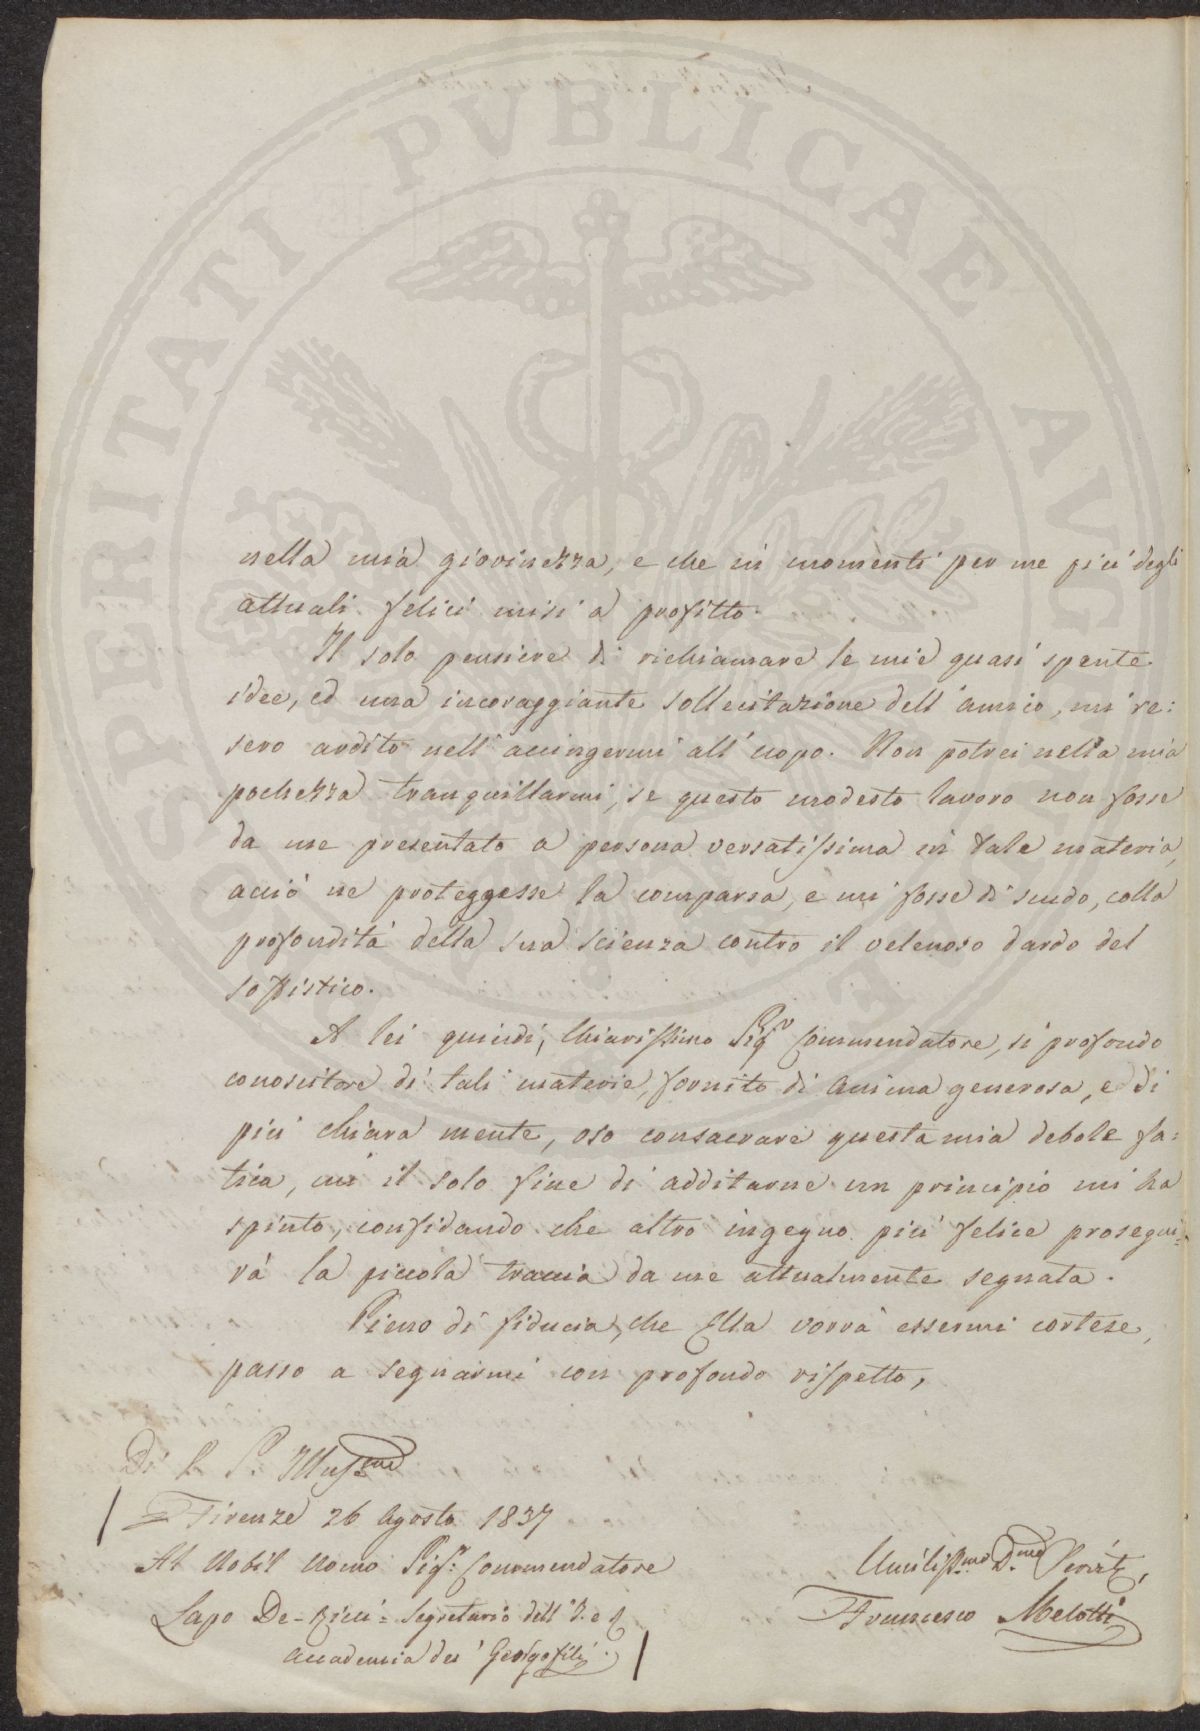 PROSPERITATI PVBLICAE AVGENDAE
nella mia giovinezza, e che in momenti per me più degli
attuali felici misi a profitto.
Il solo pensiere di richiamare le mie quasi spente
idee, ed una incoraggiante sollecitazione dell'amico, mi re:
sero ardito nell'accingermi all'uopo. Non potrei nella mia
pochezza tranquillarmi, se questo modesto lavoro non fosse
da me presentato a persona versatissima in tale materia,
acciò ne proteggesse la comparsa, e mi fosse di scudo, colla
profondità della sua scienza contro il velenoso dardo del
soffistico.
A lei quindi, Chiarissimo Sigr Commendatore, sì profondo
conoscitore di tali materie, fornito di anima generosa, e di
più chiara mente, oso consacrare questa mia debole fa:
tica, cui il solo fine di additarne un principio mi ha
spinto, confidando che altro ingegno più felice prosegui:
rà la piccola traccia da me attualmente segnata.
Pieno di fiducia, che Ella vorrà essermi cortese,
passo a segnarmi con profondo rispetto,
Di V. S. Illusma
Firenze 26 Agosto 1837
Al Nobil Uomo Sigr. Commendatore
Lapo De-Ricci = Segretario dell'I. e R.
Accademia dei Georgofili.
Umiliss.mo D.mo Servit.,
Francesco Melotti